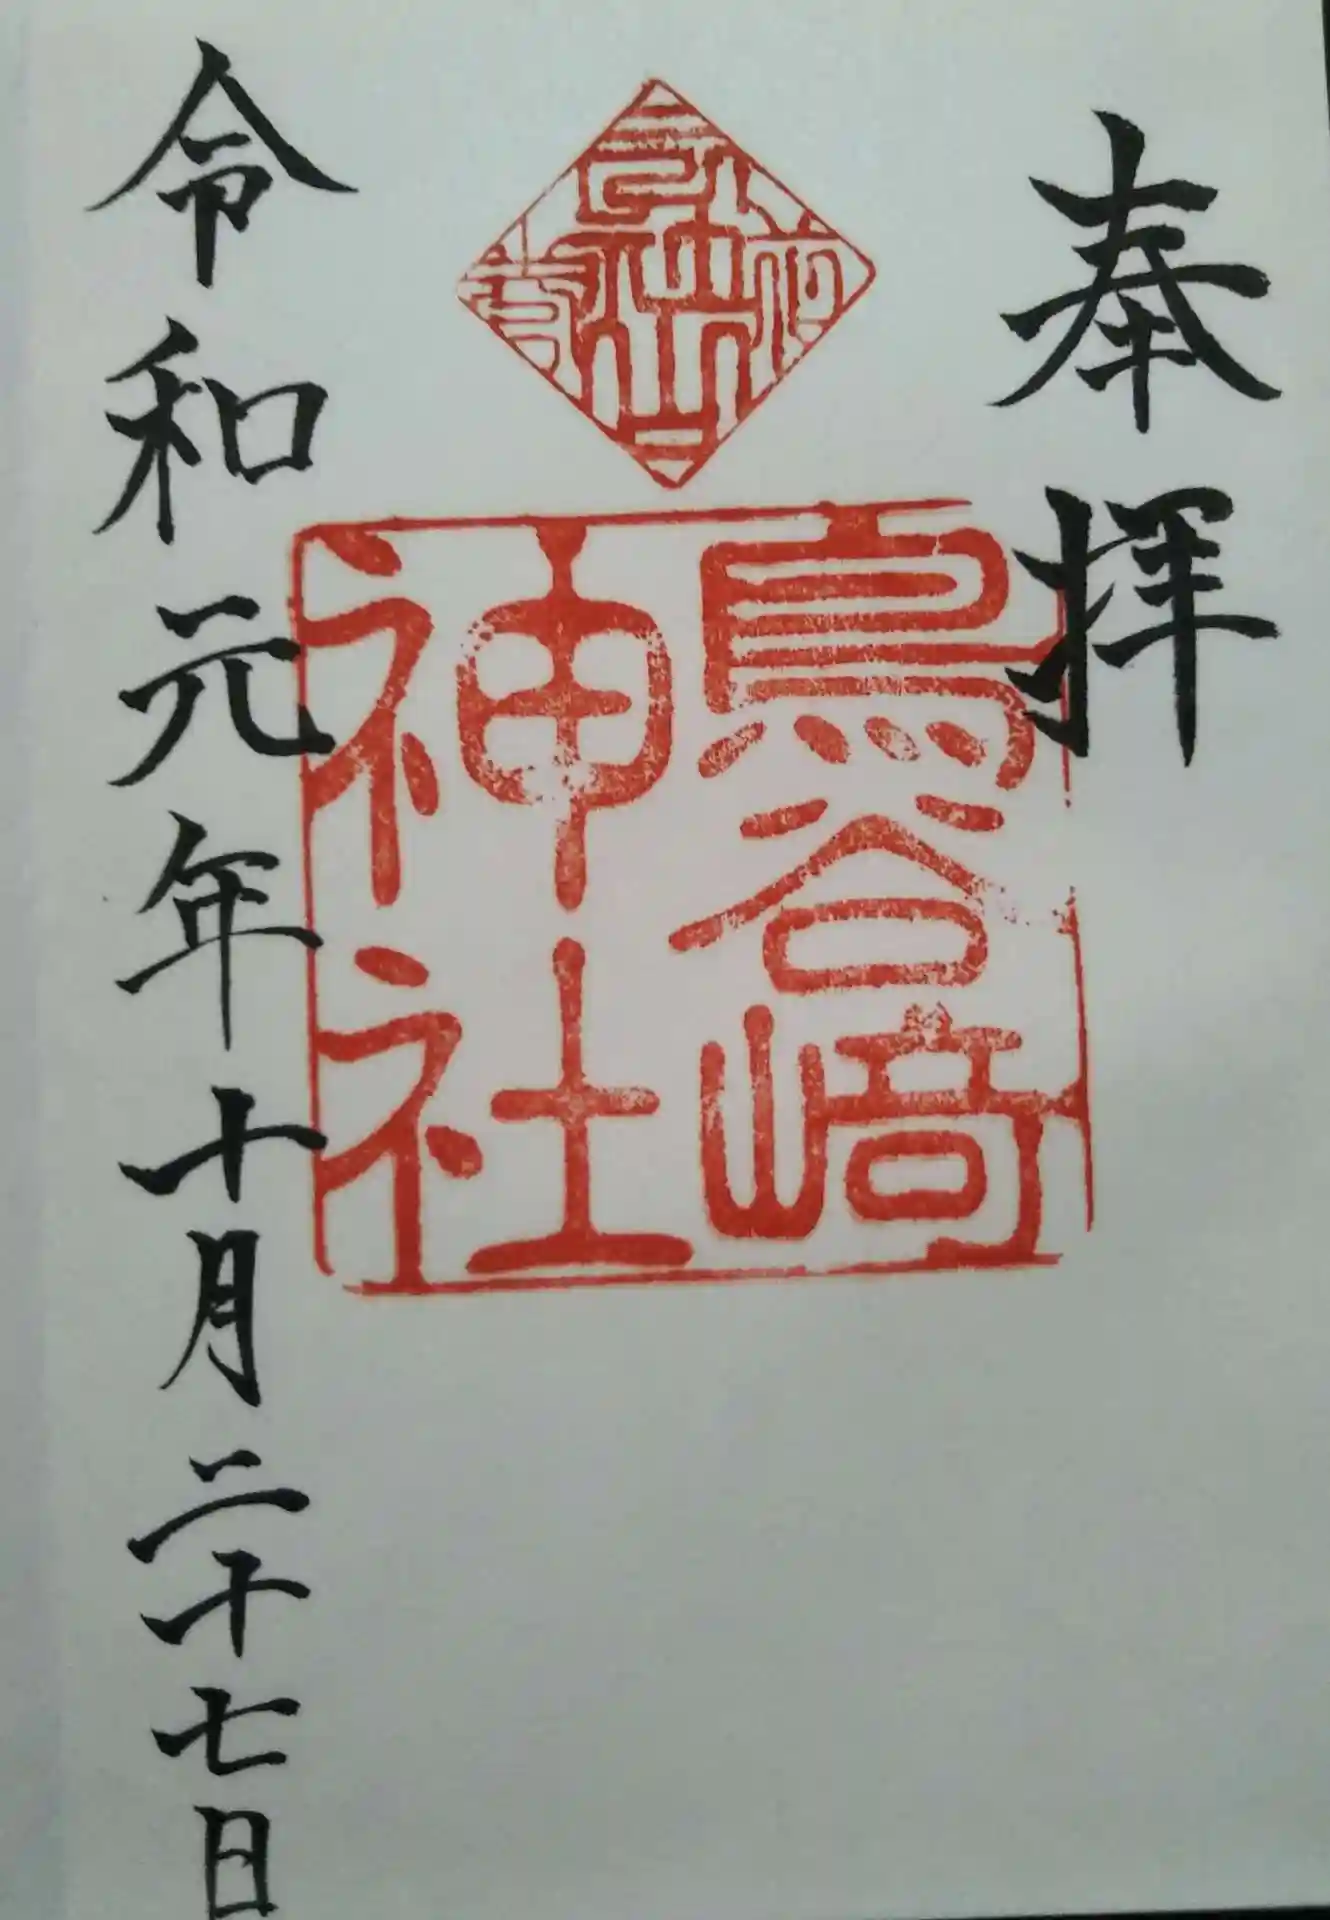 奉拝
鳥谷崎
神社
令和元年十月二十七日